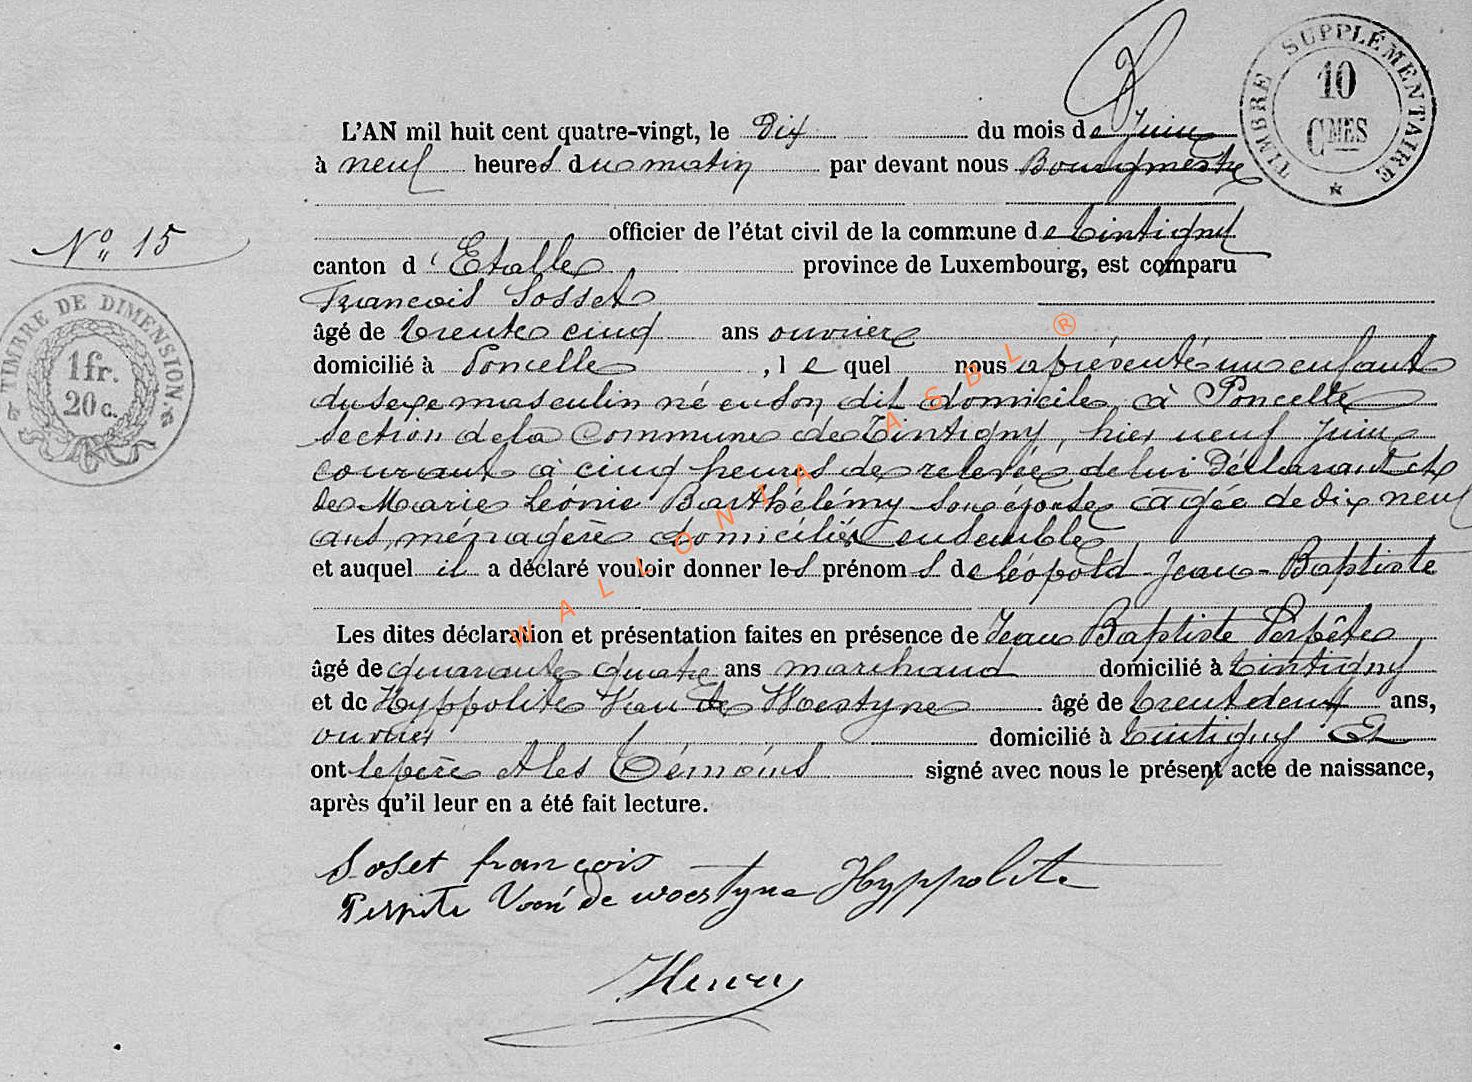 TIMBRE SUPPLÉMENTAIRE
10
CMES
L'AN mil huit cent quatre-vingt, le Dix du mois de Juin
à neuf heures du matin par devant nous Bourgmestre
officier de l'état civil de la commune de Tintigny
N° 15
canton d'Etalle province de Luxembourg, est comparu
François Sosset
TIMBRE DE DIMENSION.
1 fr.
20 c.
âgé de trente cinq ans ouvrier
domicilié à Poncelle, lequel nous a présenté un enfant
du sexe masculin né en son dit domicile à Poncelle
section de la Commune de Tintigny, hier neuf Juin
courant à cinq heures de relevée de lui Déclarant et
de Marie Léonie Barthélémy son épouse âgée de dix neuf
ans, ménagère domiciliés ensemble
et auquel il a déclaré vouloir donner les prénoms de Léopold-Jean-Baptiste
Les dites déclaration et présentation faites en présence de Jean Baptiste Perpête
âgé de quarante quatre ans marchand domicilié à Tintigny
et de Hyppolite Van de Woestyne âgé de trent deux ans,
ouvrier domicilié à Tintigny Et
ont le père et les témoins signé avec nous le présent acte de naissance,
après qu'il leur en a été fait lecture.
Soset françois
Perpete Van de woestyne Hyppolite
WALLONIA ASBL ®